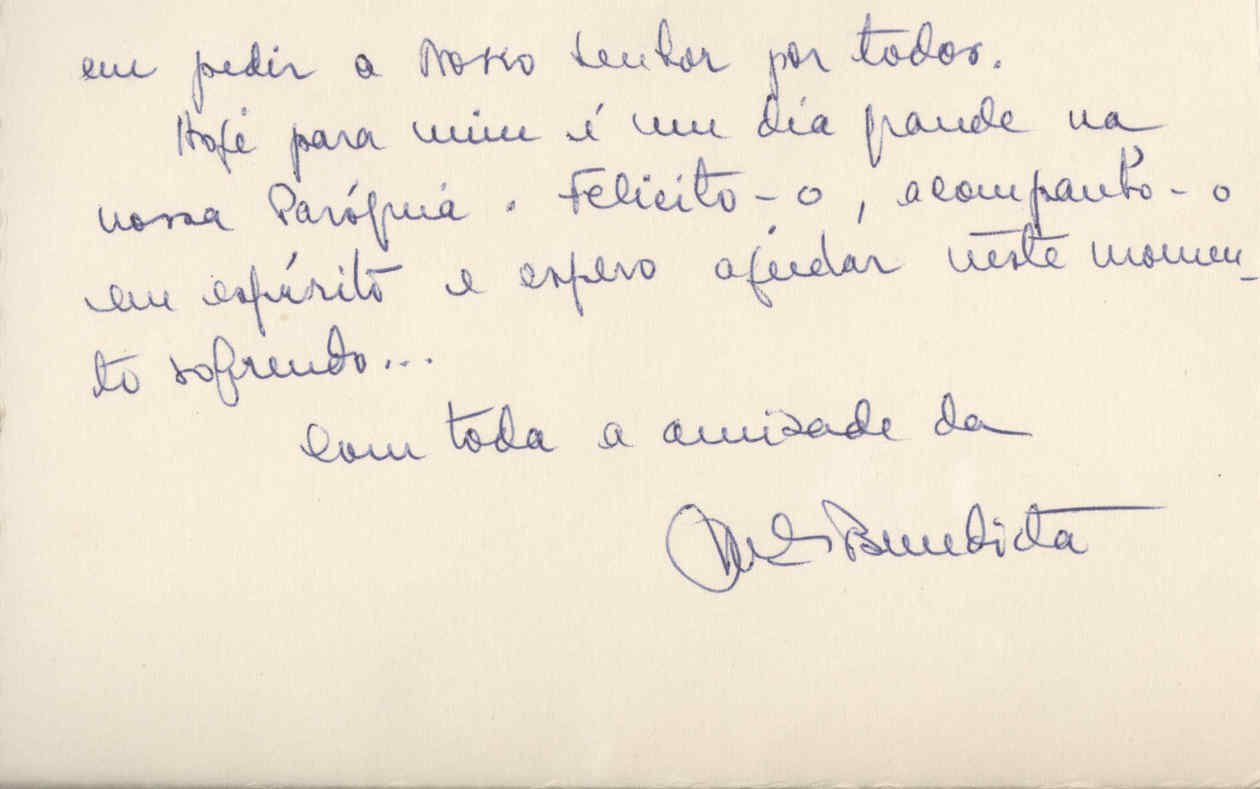 em pedir a Nosso Senhor por todos.
Hoje para mim é um dia grande na
nossa Paróquia. Felicito-o, acompanho-o
em espírito e espero ajudar neste momen-
to sofrendo...
Com toda a amizade da
Benedicta